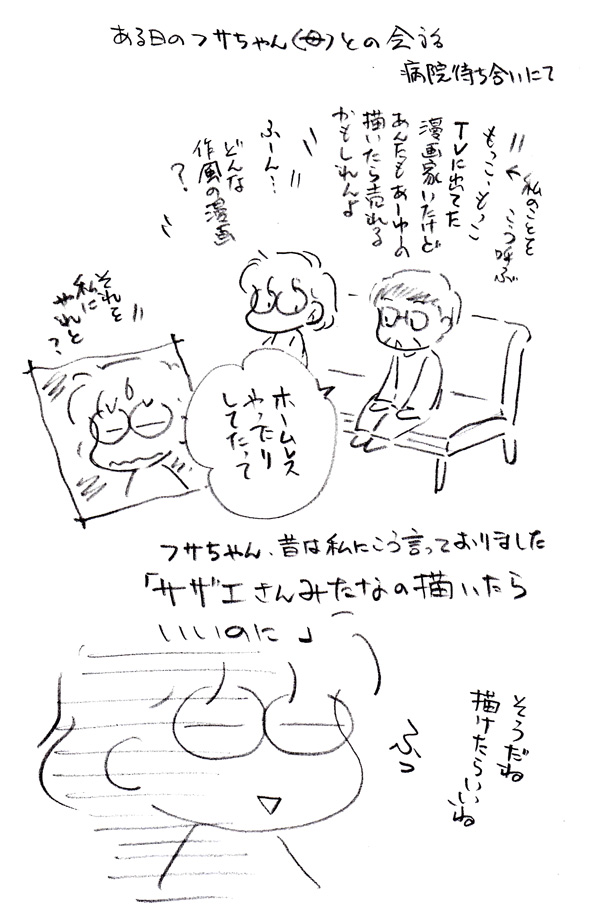 ある日のフサちゃん(母)との会話
病院待ち合いにて
もっこ、もっこ
私のことを
こう呼ぶ
TVに出てた
漫画家いたけど
あんたもあーゆーの
描いたら売れる
かもしれんよ
ふーん…
どんな
作風の漫画
?
ホームレス
やったり
してたって
それを
私に
やれと
?
フサちゃん、昔は私にこう言っておりました
「サザエさんみたなの描いたら
いいのに」
ふっ
そうだね
描けたらいいね